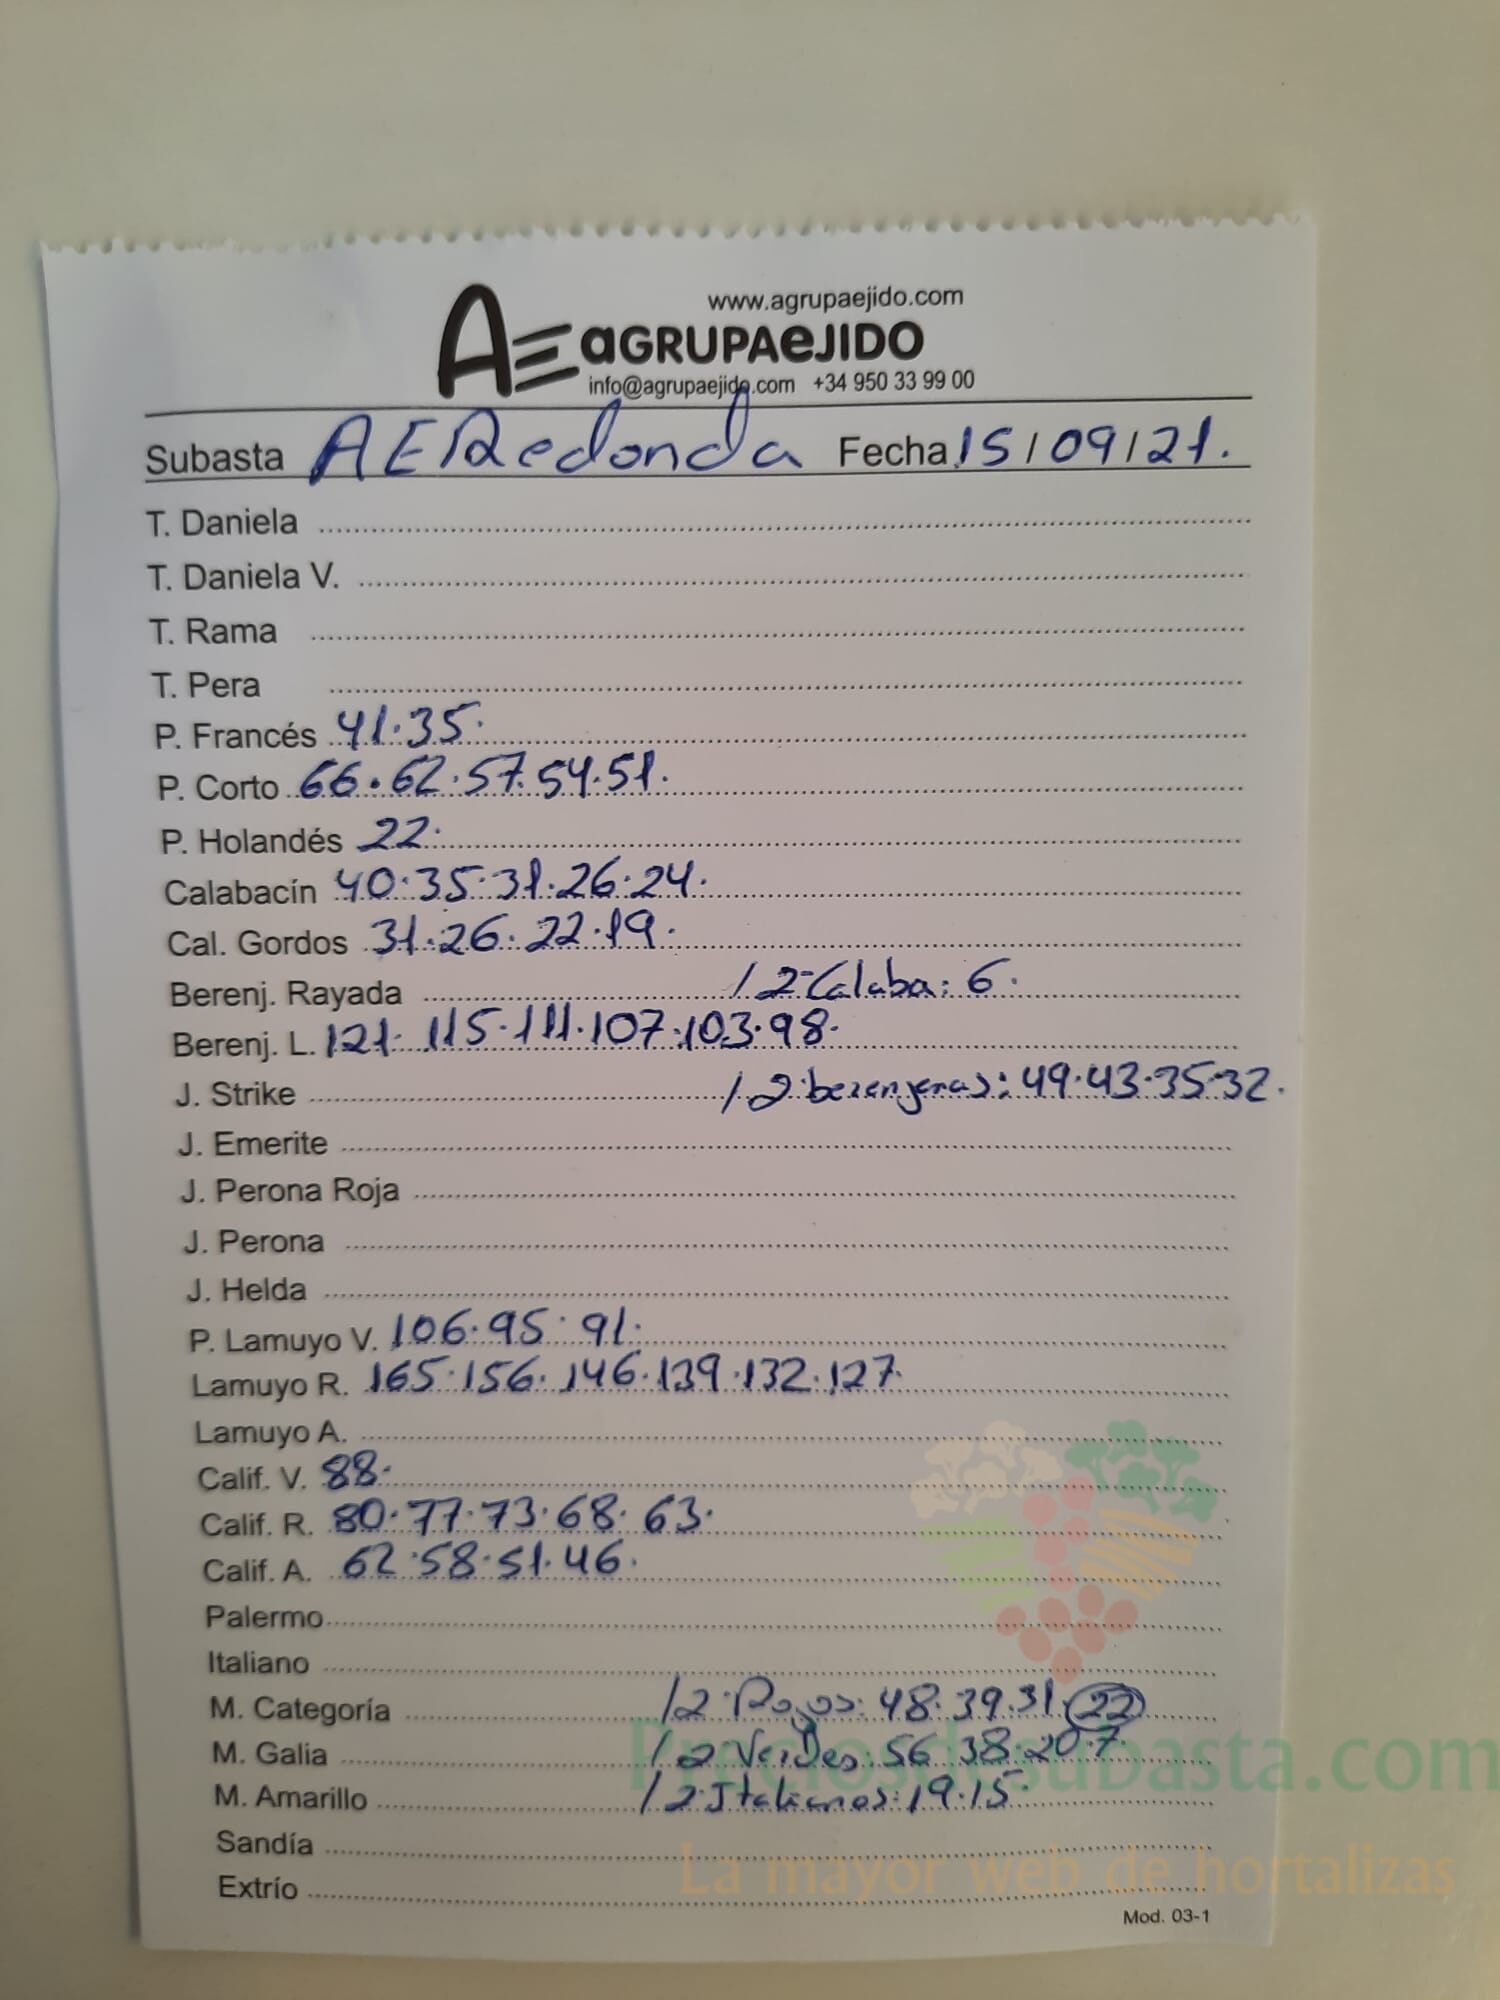 www.agrupaejido.com
AE aGRUPAeJIDO
info@agrupaejido.com +34 950 33 99 00
Subasta AERedonda Fecha 15/09/21.
T. Daniela
T. Daniela V.
T. Rama
T. Pera
P. Francés 41.35.
P. Corto 66.62.57.54.51.
P. Holandés 22.
Calabacín 40.35.31.26.24.
Cal. Gordos 31.26.22.19.
Berenj. Rayada / 2ªCalaba: 6.
Berenj. L. 121. 115.111.107.103.98.
J. Strike / 2ªberenjenas: 49.43.35.32.
J. Emerite
J. Perona Roja
J. Perona
J. Helda
P. Lamuyo V. 106.95.91.
Lamuyo R. 165.156.146.139.132.127.
Lamuyo A.
Calif. V. 88.
Calif. R. 80.77.73.68.63.
Calif. A. 62.58.51.46.
Palermo
Italiano
M. Categoría / 2ªRojos: 48.39.31.22
M. Galia / 2ªVerdes: 56.38.20.7.
M. Amarillo / 2ªItalianos: 19.15.
Preciosdesubasta.com
Sandía
La mayor web de hortalizas
Extrío
Mod. 03-1